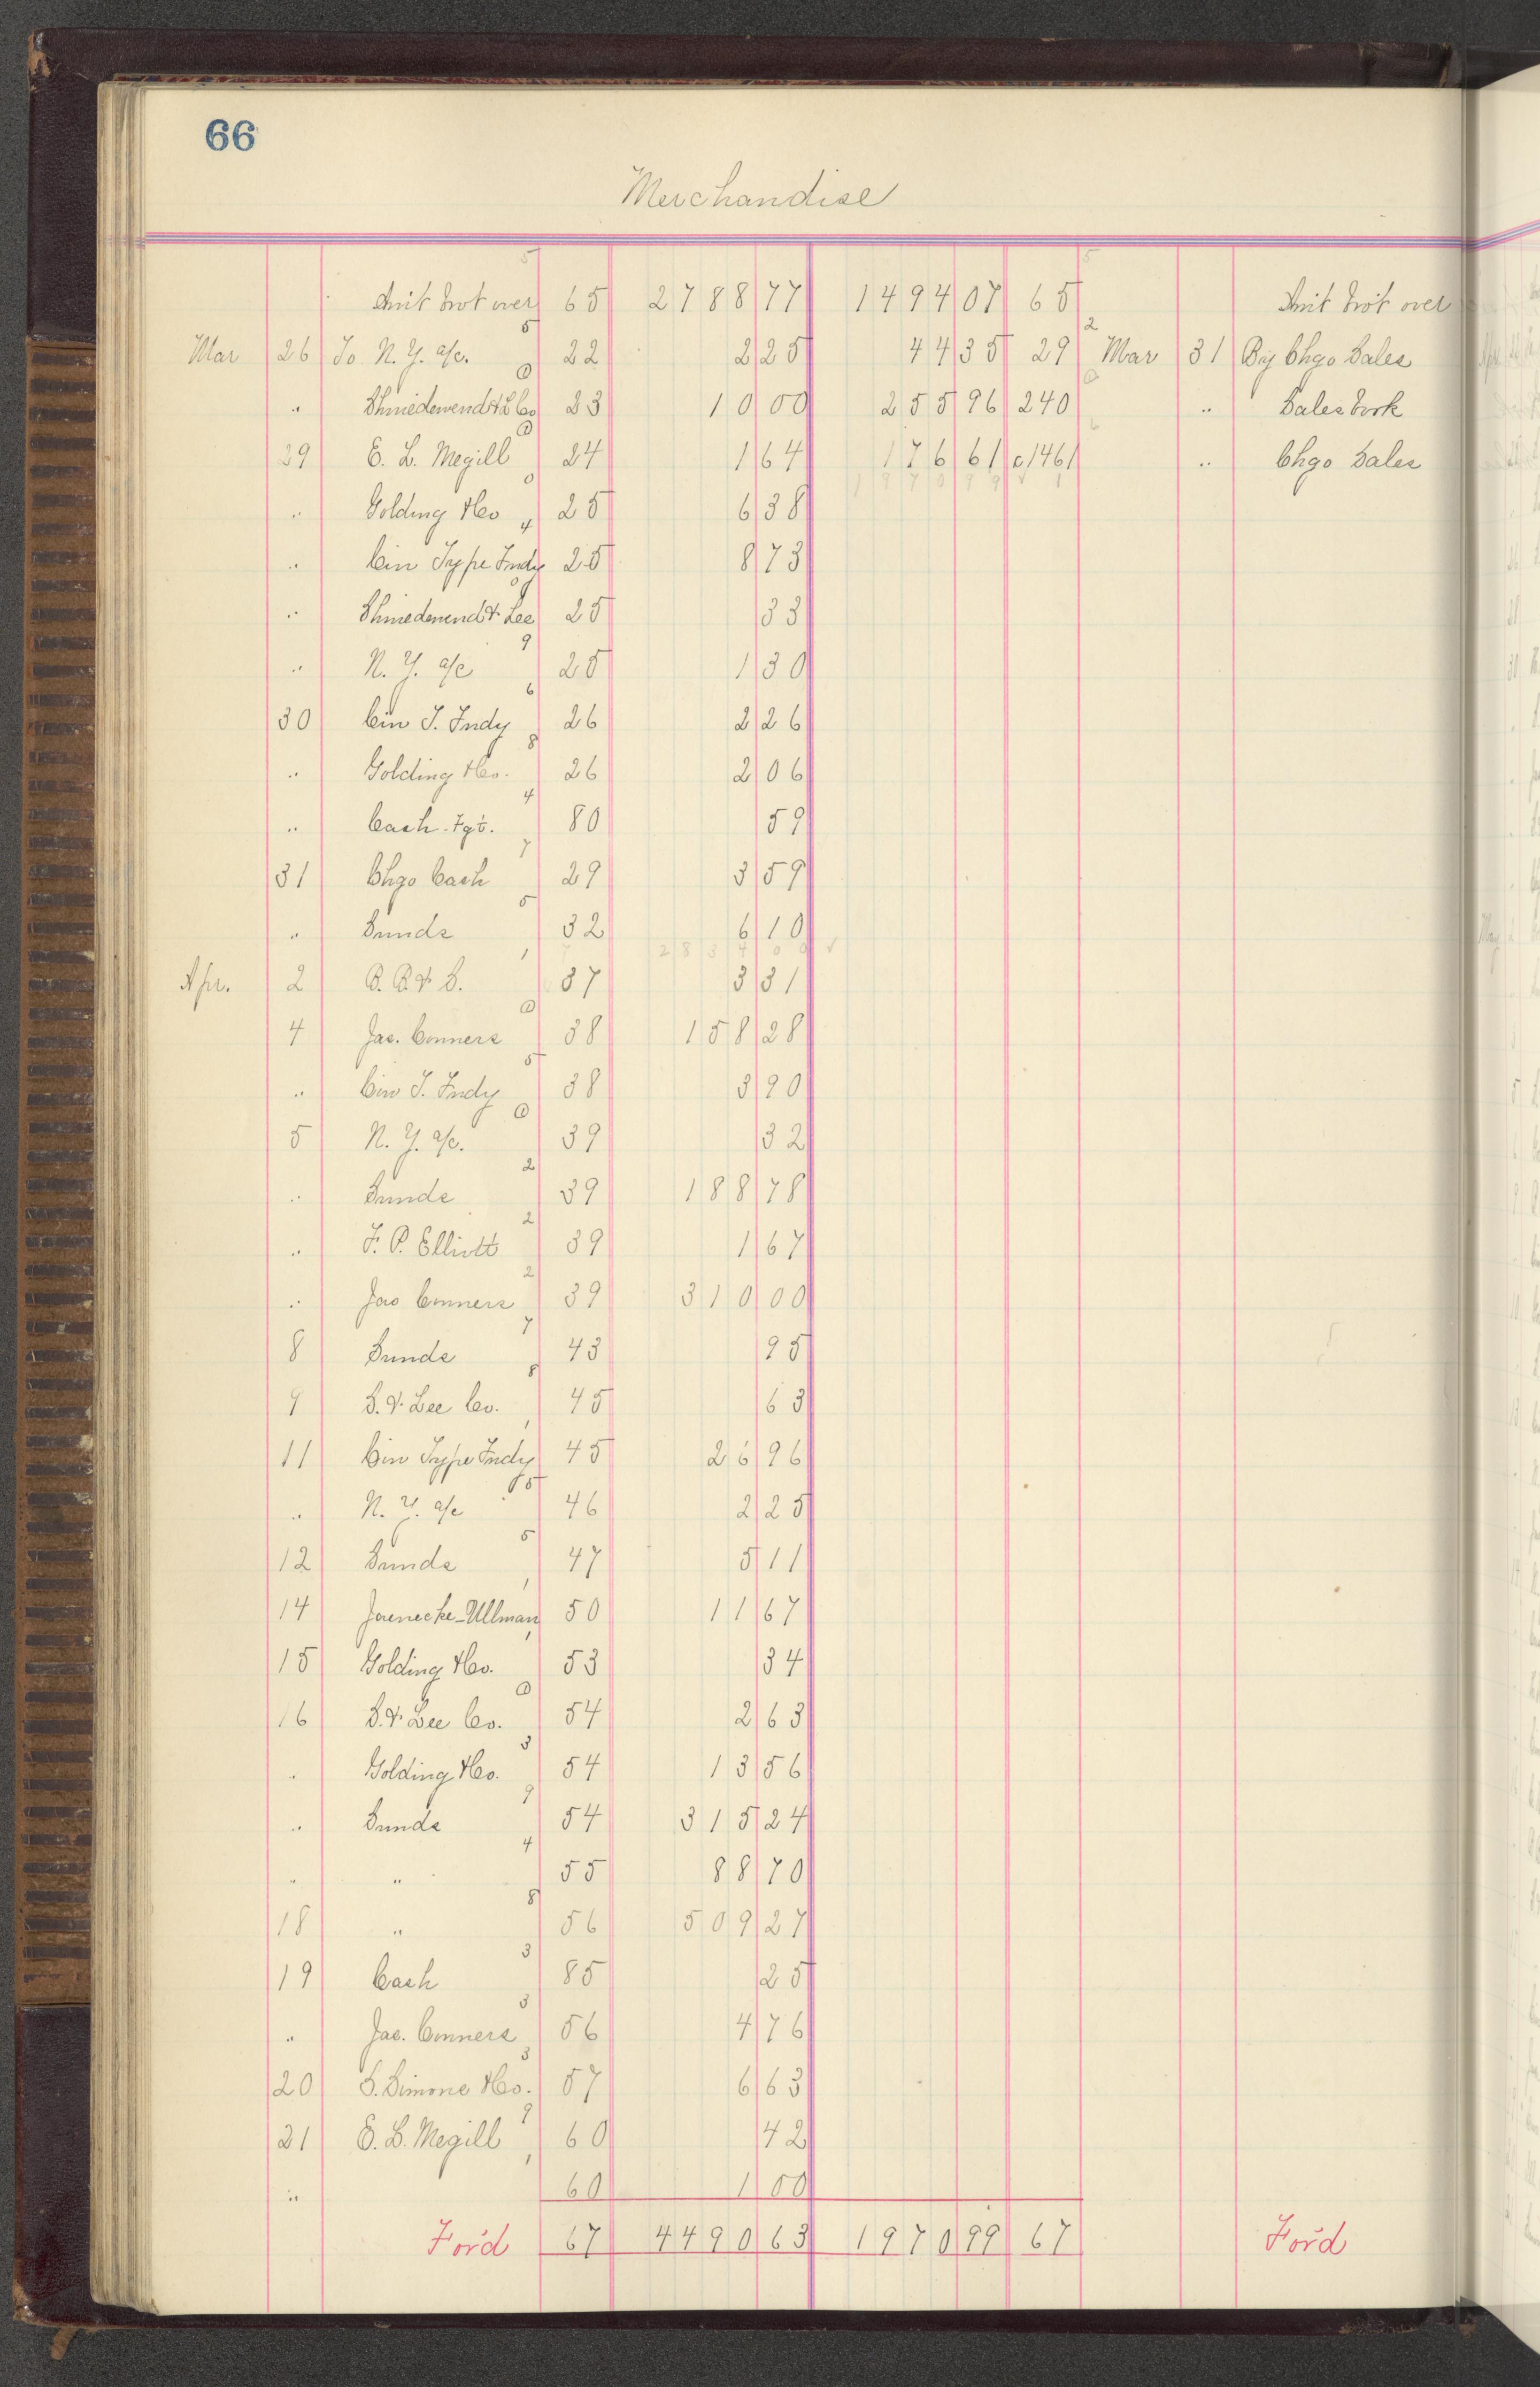 66
Merchandise
Amt brot over 65 2788 77 1494 07 65 Amt brot over
Mar 26 To N. Y. a/c. 22 2 25 44 35 29 Mar 31 By Chgo Sales
" Shniedewend & L Co 23 10 00 255 96 240 " Sales book
29 E. L. Megill 24 1 64 176 61 c/461 " Chgo Sales
" Golding & Co 25 6 38 1970 99
" Cin Type Fndy 25 8 73
" Shniedewend & Lee 25 33
" N. Y. a/c 25 1 30
30 Cin T. Fndy 26 2 26
" Golding & Co. 26 2 06
" Cash. Fgt. 80 59
31 Chgo Cash 29 3 59
" Sunds 32 6 10
2834 00
Apr. 2 B. B. & S. 37 3 31
4 Jas. Conners 38 158 28
" Cin T. Fndy 38 3 90
5 N. Y. a/c. 39 32
" Sunds 39 188 78
" F. P. Elliott 39 1 67
" Jas Conners 39 310 00
8 Sunds 43 95
9 S. & Lee Co. 45 63
11 Cin Type Fndy 45 26 96
" N. Y. a/c 46 2 25
12 Sunds 47 5 11
14 Jaenecke-Ullman 50 11 67
15 Golding & Co. 53 34
16 S. & Lee Co. 54 2 63
" Golding & Co. 54 13 56
" Sunds 54 315 24
" " 55 88 70
18 " 56 509 27
19 Cash 85 25
" Jas. Conners 56 4 76
20 S. Simons & Co. 57 6 63
21 E. L. Megill 60 42
" 60 1 00
For'd 67 4490 63 1970 99 67 For'd